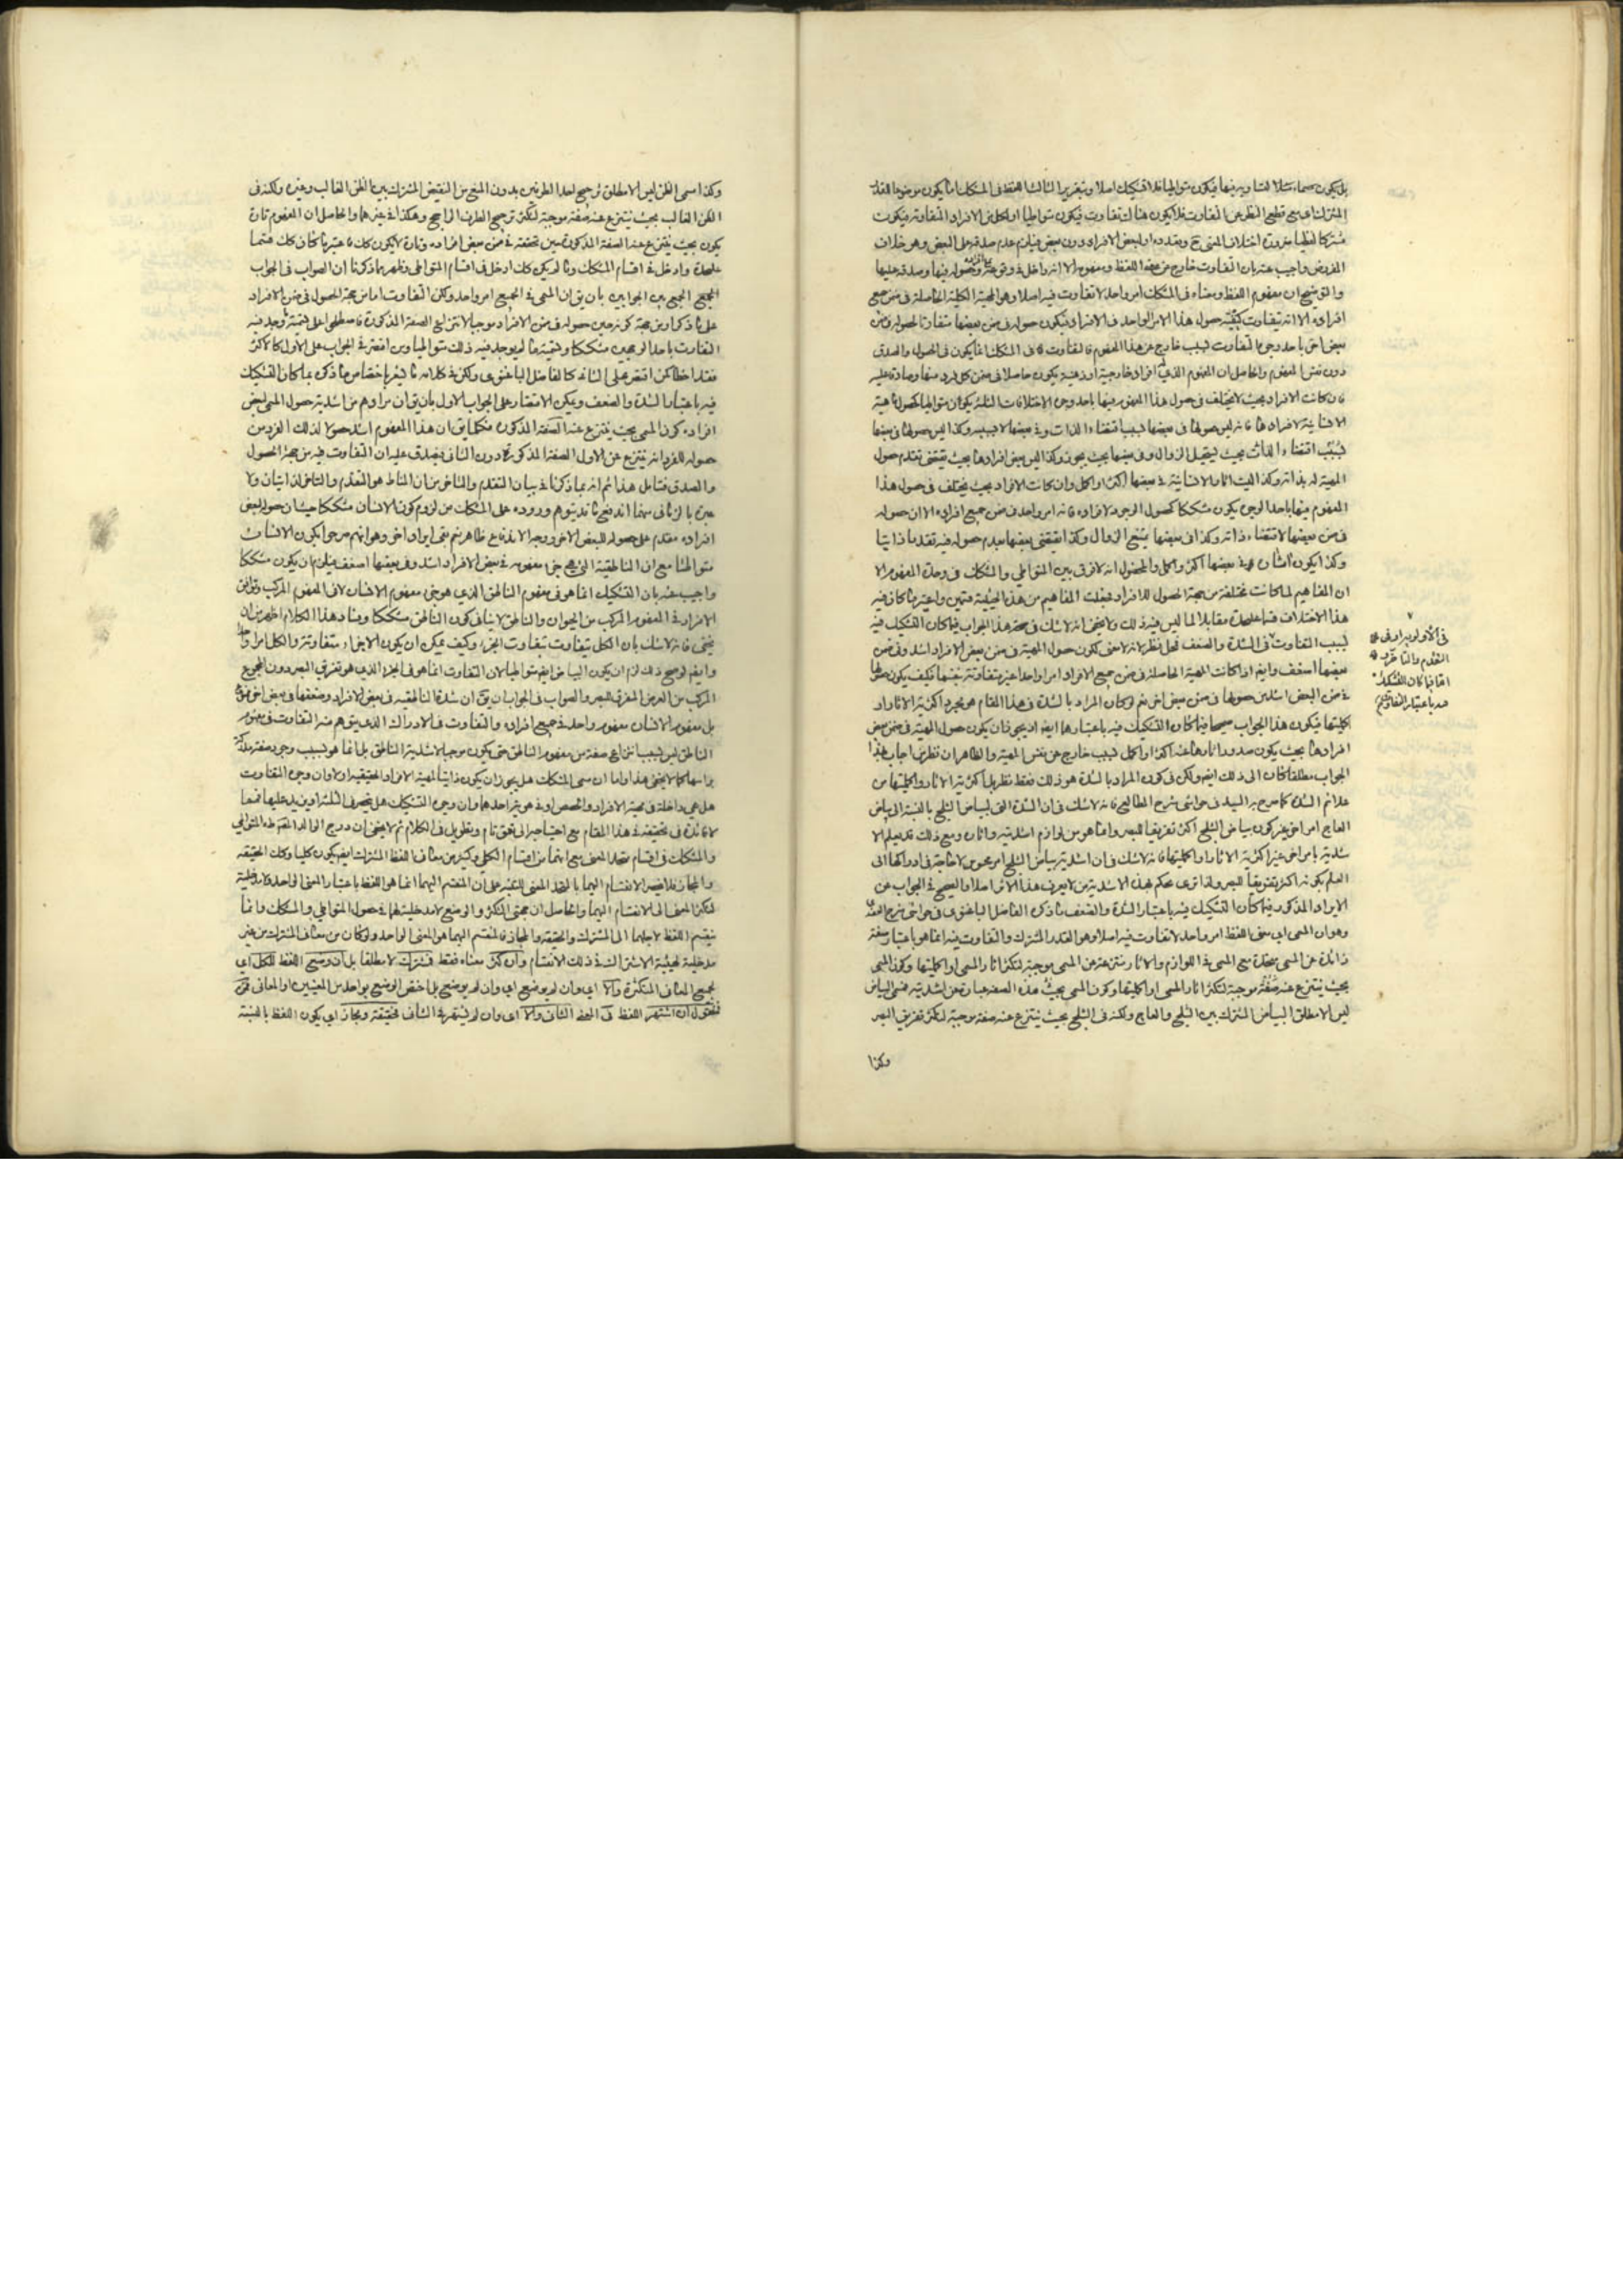 بل يكون متواطيا فلا تشكيك اصلا وتقرير الثالث اللفظ فى المشكك اما يكون موضوعا للقدر
المشترك اى مع قطع النظر عن التفاوت فلا يكون هناك تفاوت فيكون متواطيا او لكل من الافراد المتفاوتة فيكون
مشتركا لفظيا ضرورة اختلاف المعنى ح وتعدده او لبعض الافراد دون بعض فيلزم عدم صدقه على البعض وهو خلاف
المفروض واجيب عنه بان التفاوت خارج عن اللفظ ومفهومه الا انه داخل فى وقوعه وحصوله فيها وصدقه عليها
والتوضيح ان مفهوم اللفظ ومعناه فى المشكك امر واحد لا تفاوت فيه اصلا وهو المهية الكلية الحاصلة فى ضمن جميع
افراده الا انه يتفاوت كيفية حصول هذا الامر الواحد فى الافراد فيكون حصوله فى ضمن بعضها متفاوتا لحصوله فى ضمن
بعض اخر باحد وجوه التفاوت بسبب خارج عن هذا المفهوم فالتفاوت فى المشكك انما يكون فى الحصول والصدق
دون نفس المفهوم والحاصل ان المفهوم الذى له افراد خارجية او ذهنية يكون حاصلا فى ضمن كل فرد منها وصادقا عليه
فان كانت الافراد بحيث لا يختلف فى حصول هذا المفهوم فيها باحد وجوه الاختلافات الثلثة يكون متواطيا كحصول مهية
الانسانية لافرادها فانه ليس حصولها فى بعضها بسبب اقتضاء الذات وفى بعضها لا بسببه وكذا ليس حصولها فى بعضها
بسبب اقتضاء الذات بحيث يستحيل الزوال وفى بعضها بحيث يجوز وكذا ليس بعض افرادها بحيث يقتضى تقدم حصول
المهية له بذاته وكذا ليست اثار الانسانية فى بعضها اكثر او اكمل وان كانت الافراد بحيث يختلف فى حصول هذا
المفهوم فيها باحد الوجوه يكون مشككا كحصول الوجود لافراده فانه امر واحد فى ضمن جميع افراده الا ان حصوله
فى ضمن بعضها لاقتضاء ذاته وكذا فى بعضها يمتنع الزوال وكذا يقتضى بعضها بعدم حصوله فيه تقدما ذاتيا
وكذا يكون اثاره فى بعضها اكثر واكمل والمحصول انه لا فرق بين المتواطى والمشكك فى وحدة المفهوم الا
ان المفاهيم لما كانت مختلفة من جهة الحصول للافراد فجعلت المفاهيم من هذه الحيثية قسمين واعتبر ما كان فيه
هذا الاختلاف قسما عليحدة مقابلا لما ليس فيه ذلك ولا يخفى انه لا شك فى صحة هذا الجواب فيما كان التشكيك فيه
بسبب التفاوت فى الشدة والضعف فمحل نظر لانه لا معنى لكون حصول المهية فى ضمن بعض الافراد اشد وفى ضمن
بعضها اضعف وايضا اذا كانت المهية الحاصلة فى ضمن جميع الافراد امرا واحدا غير متفاوتة بنفسها فكيف يكون حصولها
فى ضمن البعض اشد من حصولها فى ضمن بعض اخر نعم لو كان المراد بالشدة فى هذا المقام هو مجرد اكثرية الاثار او
اكمليتها فيكون هذا الجواب صحيحا فيما كان التشكيك فيه باعتبارهما ايضا اذ يجوز ان يكون حصول المهية فى ضمن بعض
افرادها بحيث يكون صدور اثارها عنه اكثر او اكمل بسبب خارج عن نفس المهية والظاهر ان نظر من اجاب بهذا
الجواب مطلقا كان الى ذلك ايضا ولكن فى كون المراد بالشدة هو ذلك فقط نظر بل اكثرية الاثار واكمليتها من
علائم الشدة كما صرح به السيد فى حواشى شرح المطالع فانه لا شك فى ان الشدة التى لبياض الثلج بالنسبة الى بياض
العاج امر اخر غير كون بياض الثلج اكثر تفريقا للبصر وانما هو من لوازم اشديته واثاره ومع ذلك قد يعلم الا
شدية بامر اخر غير اكثرية الاثار او اكمليتها فانه لا شك فى ان اشدية بياض الثلج امر محسوس لا حاجة فى ادراكها الى
العلم بكونه اكثر تفريقا للبصر ولذا ترى يحكم بهذه الاشدية من لا يعرف هذا الاثر اصلا والصحيح فى الجواب عن
الايراد المذكور فيما كان التشكيك فيه باعتبار الشدة والضعف ما ذكره الفاضل الباغنوى فى حواشى شرح العضدى
وهو ان المعنى اى معنى اللفظ امر واحد لا تفاوت فيه اصلا وهو القدر المشترك والتفاوت فيه انما هو باعتبار صفة
زائدة عن المعنى متحدة مع المعنى فى اللوازم والاثار منتزعة عن المعنى موجبة لتكثر اثار المعنى او اكمليتها وكون المعنى
بحيث ينتزع عنه صفة موجبة لتكثر اثار المعنى او اكمليتها وكون المعنى بحيث هذه الصفة عبارة عن اشديته فمعنى البياض
ليس الا مطلق البياض المشترك بين الثلج والعاج ولكنه فى الثلج بحيث ينتزع عنه صفة موجبة لتكثر تفريق البصر
وكذا
فى الاولوية او فى
التقدم والتاخر و
اما فيما كان التشكيك
فيه باعتبار التفاوت
وكذا اسمى الظن ليس الا مطلق ترجيح احد الطرفين بدون المنع من النقيض المشترك بين الظن الغالب وغيره ولكنه فى
الظن الغالب بحيث ينتزع عنه صفة موجبة لتكثر ترجيح الطرف الراجح وهكذا فى غيرهما والحاصل ان المفهوم تارة
يكون بحيث ينتزع عنه الصفة المذكورة حين تحققه فى ضمن بعض افراده وتارة لا يكون كك فاعتبر ما كان كك قسما
عليحدة وادخل فى اقسام المشكك وما لم يكن كك ادخل فى اقسام المتواطى وظهر بما ذكرنا ان الصواب فى الجواب
الجمع بين الجوابين بان يق ان المعنى فى الجميع امر واحد ولكن التفاوت اما من جهة الحصول فى ضمن الافراد
على ما ذكر او من جهة كونه حين حصوله فى ضمن الافراد موجبا لانتزاع الصفة المذكورة فاصطلحوا على تسمية ما وجد فيه
التفاوت باحد الوجهين مشككا وتسمية ما لم يوجد فيه ذلك متواطيا ومن اقتصر فى الجواب على الاول كالاكثر
فقد اخطأ كمن اقتصر على الثانى كالفاضل الباغنوى ولكن فى كلامه ما يشعر باختصاص ما ذكره بما كان التشكيك
فيه باعتبار الشدة والضعف ويمكن الاقتصار على الجواب الاول بان يق ان مرادهم من اشدية حصول المعنى لبعض
افراده كون المعنى بحيث ينتزع عنه الصفة المذكورة فكما يق ان هذا المفهوم اشد حصولا لذلك الفرد من
حصوله للفرد انه ينتزع عن الاول الصفة المذكورة دون الثانى فيصدق عليه ان التفاوت فيه من جهة الحصول
والصدق فتامل هذا ثم انه بما ذكرنا فى بيان التقدم والتاخر من ان المناط هو التقدم والتاخر الذاتيان ولا
عبرة بالزمانى منهما اندفع ما قد يتوهم وروده على المشكك من لزوم كون الانسان مشككا حيث ان حصوله لبعض
افراده مقدم على حصوله للبعض الاخر ووجه الاندفاع ظاهر نعم بقى ايراد اخر وهو انهم صرحوا بكون الانسان
متواطئا مع ان الناطقية التى هى جزء مفهومه فى بعض الافراد اشد وفى بعضها اضعف فيلزم ان يكون مشككا
واجيب عنه بان التشكيك انما هو فى مفهوم الناطق الذى هو جزء مفهوم الانسان لا فى المفهوم المركب وتوافق
الافراد فى المفهوم المركب من الحيوان والناطق لا ينافى كون الناطق مشككا وفساد هذا الكلام اظهر من ان
يخفى فانه لا شك بان الكل يتفاوت بتفاوت الجزء وكيف يمكن ان يكون الاجزاء متفاوتة والكل امرا واحدا
وايضا لو صح ذلك لزم ان يكون البياض ايضا متواطيا لان التفاوت انما هو فى الجزء الذى هو تفريق البصر دون المجموع
المركب من العرض المفرق للبصر والصواب فى الجواب ان يق ان شدة الناطقية فى بعض الافراد وضعفها فى بعض اخر ممنوع
بل مفهوم الانسان مفهوم واحد فى جميع افراده والتفاوت فى الادراك الذى يتوهم منه التفاوت فى مفهوم
الناطق ليس بسبب انتزاع صفة من مفهوم الناطق حتى يكون موجبا لاشدية الناطق بل انما هو بسبب وجود صفة مدركة
براسها كما لا يخفى هذا واما ان معنى المشكك هل يجوز ان يكون ذاتيا لمهية الافراد الحقيقية او لا وان وجوه التفاوت
هل هى داخلة فى مهية الافراد والحصص او فى غير احدهما وان وجوه التشكيك هل ينحصر فى الثلثة او يزيد عليها فمما
لا فائدة فى تحقيقه فى هذا المقام مع احتياجه الى تعمق تام وتطويل فى الكلام ثم لا يخفى ان درج الوالد المتواطى
والمشكك فى اقسام متحد المعنى مع انهما من اقسام الكلى وكثير من معانى اللفظ المشترك ايضا يكون كليا وكك الحقيقة
والمجاز فلا يختص الانقسام اليهما بالمتحد المعنى للتنبيه على ان المنقسم اليهما انما هو اللفظ باعتبار المعنى الواحد فلا مدخلية
لتكثر المعنى الى الانقسام اليهما والحاصل ان جهتى التكثر والوضع لا مدخلية لهما فى حصول المتواطى والمشكك وانما
ينقسم اللفظ لاجلهما الى المشترك والحقيقة والمجاز فالمنقسم اليهما هو المعنى الواحد ولو كان من معانى المشترك من غير
مدخلية لحيثية الاشتراك فى ذلك الانقسام وان كثر معناه فقط فمشترك لا مطلقا بل ان وضع اللفظ للكل اى
لجميع المعانى المتكثرة والا اى وان لم يوضع اى وان لم يوضع بل اختص الوضع بواحد من المعنيين او المعانى
فمنقول ان اشتهر اللفظ فى المعنى الثانى والا اى وان لم يشتهر فى الثانى فحقيقة ومجاز اى يكون اللفظ بالنسبة